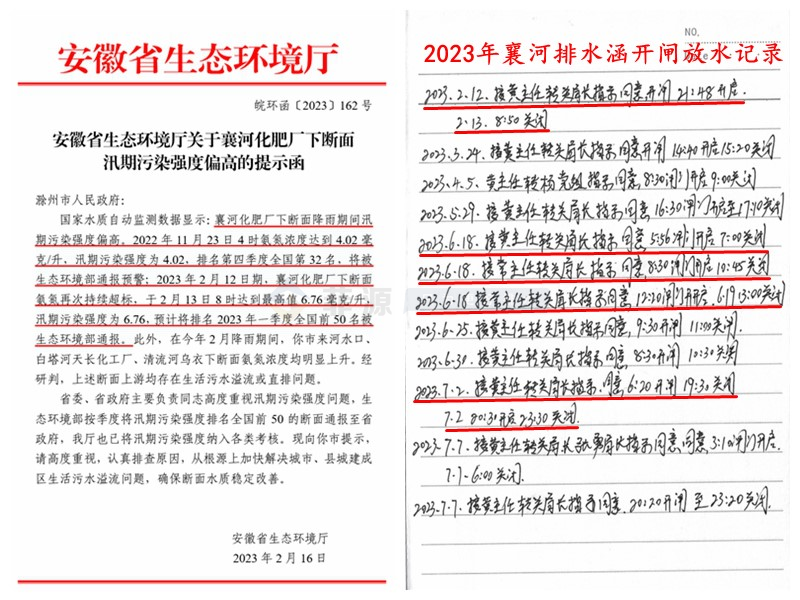 安徽省生态环境厅
皖环函〔2023〕162 号
安徽省生态环境厅关于襄河化肥厂下断面
汛期污染强度偏高的提示函
滁州市人民政府:
国家水质自动监测数据显示: 襄河化肥厂下断面降雨期间汛
期污染强度偏高。2022 年 11 月 23 日 4 时氨氮浓度达到 4.02 毫
克/升, 汛期污染强度为 4.02, 排名第四季度全国第 32 名, 将被
生态环境部通报预警; 2023 年 2 月 12 日期, 襄河化肥厂下断面
氨氮再次持续超标, 于 2 月 13 日 8 时达到最高值 6.76 毫克/升,
汛期污染强度为 6.76, 预计将排名 2023 年一季度全国前 50 名被
生态环境部通报。此外, 在今年 2 月降雨期间, 你市来河水口、
白塔河天长化工厂、清流河乌衣下断面氨氮浓度均明显上升。经
研判, 上述断面上游均存在生活污水溢流或直排问题。
省委、省政府主要负责同志高度重视汛期污染强度问题, 生
态环境部按季度将汛期污染强度排名全国前 50 的断面通报至省
政府, 我厅也已将汛期污染强度纳入各类考核。现向你市提示,
请高度重视, 认真排查原因, 从根源上加快解决城市、县城建成
区生活污水溢流问题, 确保断面水质稳定改善。
安徽省生态环境厅
2023 年 2 月 16 日
NO.
2023年襄河排水涵开闸放水记录
2023.2.12. 接黄主任转关局长指示同意开闸 21:48开启
2.13. 8:50关闭
2023.3.24. 接黄主任转关局长指示同意开闸 14:40开启 15:20关闭
2023.4.5. 黄主任转杨党组指示同意 8:30闸门开启 9:00关闭
2023.5.29. 接黄主任转关局长指示同意, 16:30闸门开启至17:10关闭
2023.6.18. 接黄主任转关局长指示同意 5:56闸门开启 7:00关闭
2023.6.18. 接常主任转关局长指示同意, 8:30闸门开启 10:45关闭
2023.6.18 接常主任转关局长指示同意, 12:20闸门开启. 6.19 13:00关闭
2023.6.25. 接黄主任转关局长指示同意, 9:30开闸 11:00关闭.
2023.6.30. 接黄主任转关局长指示同意 8:30开闸 10:30关闭
2023.7.2. 接黄主任转关局长指示. 同意 6:20开闸 19:30关闭
7.2 20:30开启 23:30关闭.
2023.7.7. 接黄主任转关局长 局长指示同意, 同意 3:10闸门开启.
7.7-6:00关闭.
2023.7.7. 接黄主任转关局长指示同意. 20:20开闸 至 23:20关闭.